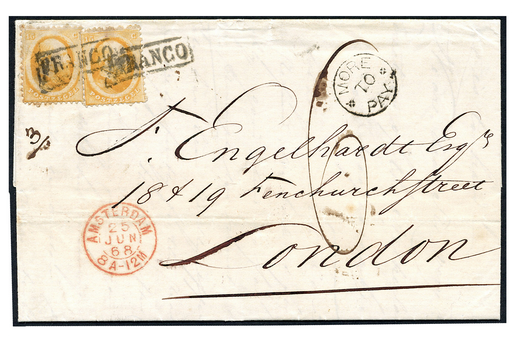 FRANCO
FRANCO
MORE
TO
PAY
J. Engelhardt Esqre
18 & 19 Fenchurchstreet
London
AMSTERDAM
25
JUN
68
8A-12M